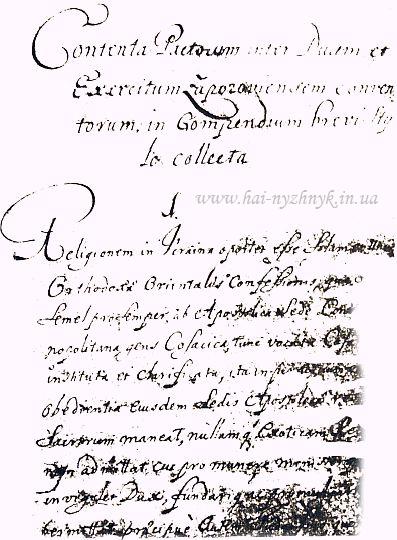 Contenta Pactorum inter Ducem et
Exercitum Zaporoviensem conven
torum, in Compendium brevi sty
lo collecta
www.hai-nyzhnyk.in.ua
1.
Religionem in Ucraina oportet esse
Orthodoxæ Orientalis Confessionis, quæ
semel pro semper, ab Apostolica sede Con
nopolitana, gens Cosacica, tunc vocata
instituta et clarificata, ita in
obedientia Eiusdem sedis Apostolicæ
maneat, nullamq Exoticam
non admittat, cui pro munere
in vigilet Dux,
præcipuè